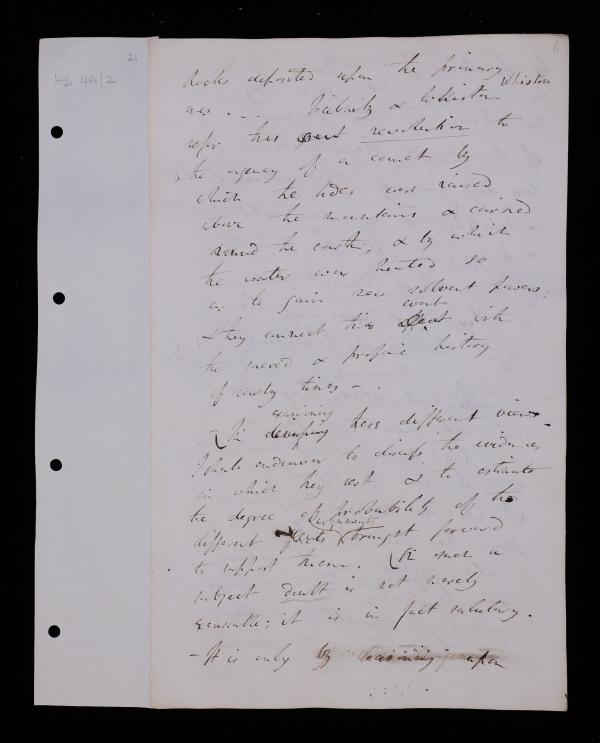 21
HD 4A/2
6
Rocks deposited upon the primary
Whiston
ones . . . Leibnitz & Whiston
refer this great revolution to
the agency of a comet by
which the tides were raised
above the mountains & carried
round the earth, & by which
the water was heated so
as to gain new solvent powers;
event
& they connect this with
the sacred & profane history
of early times - .
examining
- In these different views
I shall endeavor to discuss the evidences
on which they rest & to estimate
the degree of probability of the
arguments
different facts brought forward
to support them. In such a
subject doubt is not merely
excusable; it is in fact salutary.
- It is only by reasoning upon